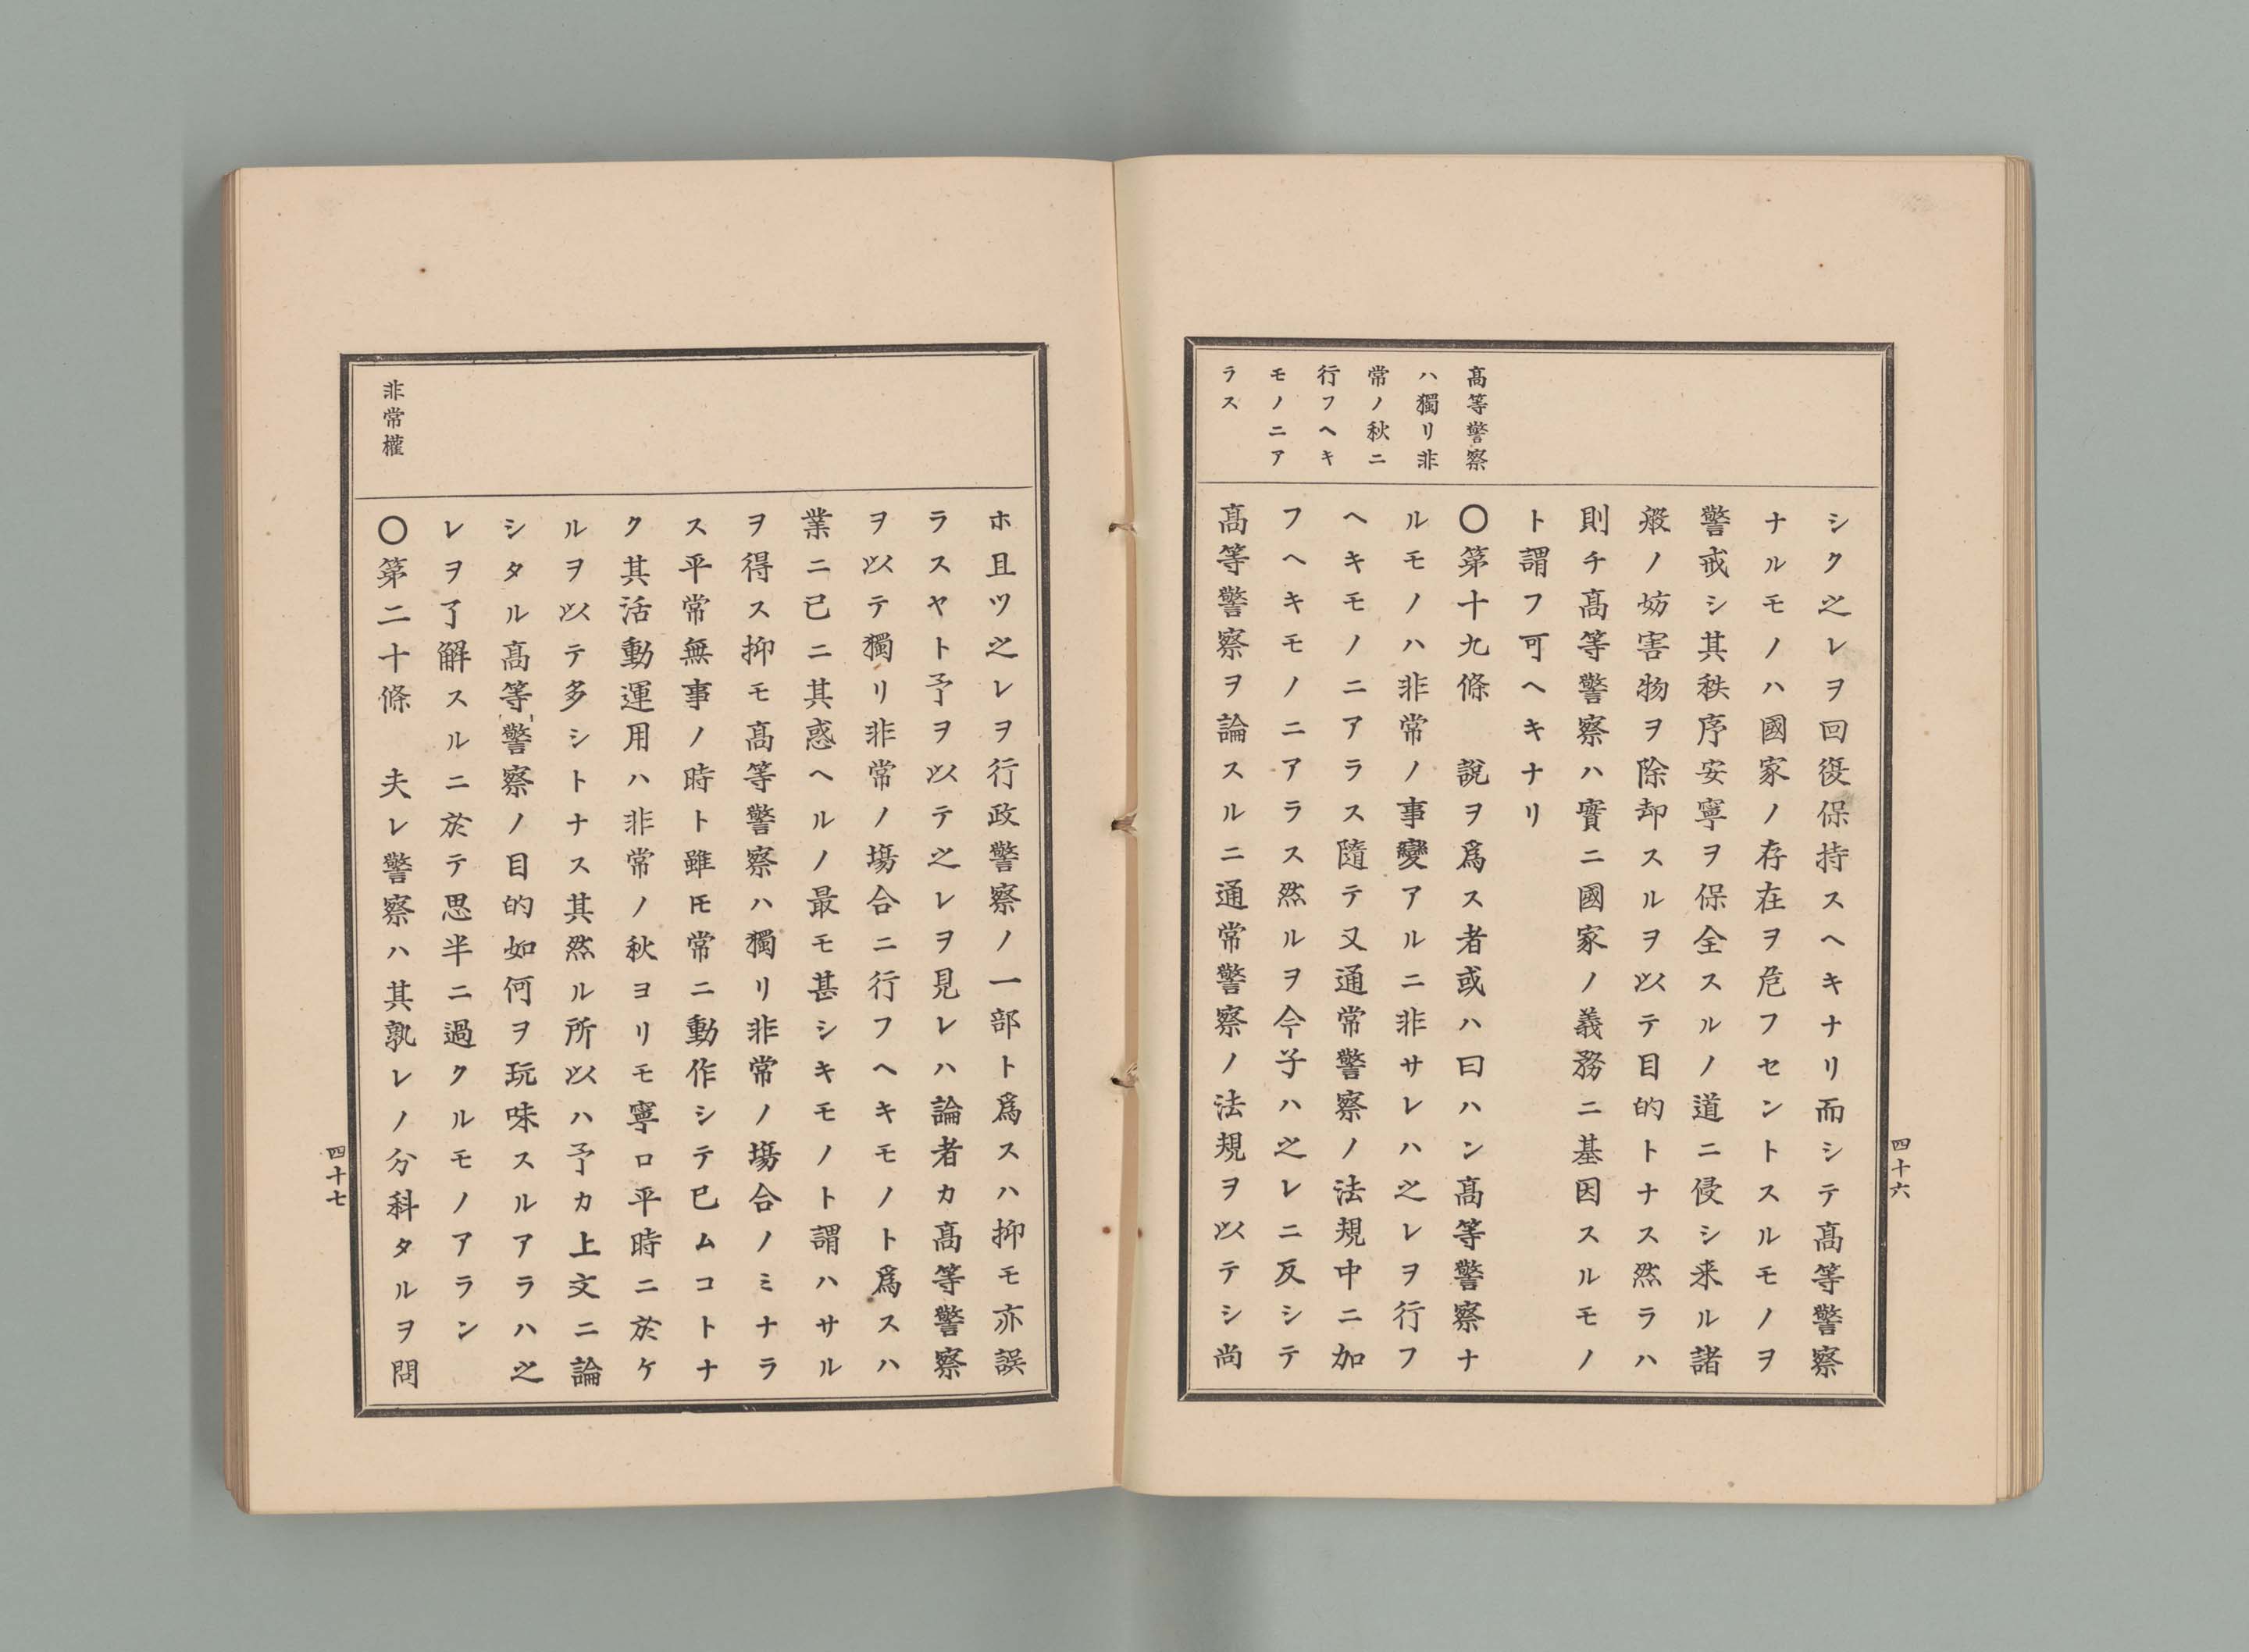 高等警察
ハ獨リ非
常ノ秋ニ
行フヘキ
モノニア
ラス
シク之レヲ回復保持スヘキナリ而シテ髙等警察
ナルモノハ國家ノ存在ヲ危フセントスルモノヲ
警戒シ其秩序安寧ヲ保全スルノ道ニ侵シ来ル諸
般ノ妨害物ヲ除却スルヲ以テ目的トナス然ラハ
則チ髙等警察ハ實ニ國家ノ義務ニ基因スルモノ
ト謂フ可ヘキナリ
〇第十九條　說ヲ爲ス者或ハ曰ハン髙等警察ナ
ルモノハ非常ノ事變アルニ非サレハ之レヲ行フ
ヘキモノニアラス隨テ又通常警察ノ法規中ニ加
フヘキモノニアラス然ルヲ今子ハ之レニ反シテ
髙等警察ヲ論スルニ通常警察ノ法規ヲ以テシ尚
四十六
非常權
ホ且ツ之レヲ行政警察ノ一部ト爲スハ抑モ亦誤
ラスヤト予ヲ以テ之レヲ見レハ論者カ髙等警察
ヲ以テ獨リ非常ノ塲合ニ行フヘキモノト爲スハ
業ニ已ニ其惑ヘルノ最モ甚シキモノト謂ハサル
ヲ得ス抑モ髙等警察ハ獨リ非常ノ塲合ノミナラ
ス平常無事ノ時ト雖𪜈常ニ動作シテ已ムコトナ
ク其活動運用ハ非常ノ秋ヨリモ寧ロ平時ニ於ケ
ルヲ以テ多シトナス其然ル所以ハ予カ上文ニ論
シタル髙等警察ノ目的如何ヲ玩味スルアラハ之
レヲ了解スルニ於テ思半ニ過クルモノアラン
〇第二十條　夫レ警察ハ其孰レノ分科タルヲ問
四十七